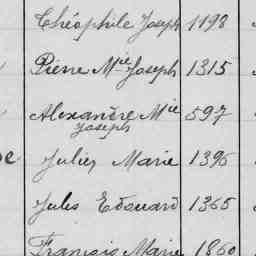 Théophile Joseph 1198
Pierre Mie Joseph 1315
Alexandre Mie 597
Joseph
Julien Marie 1396
Jules Edouard 1365
François Marie 1860